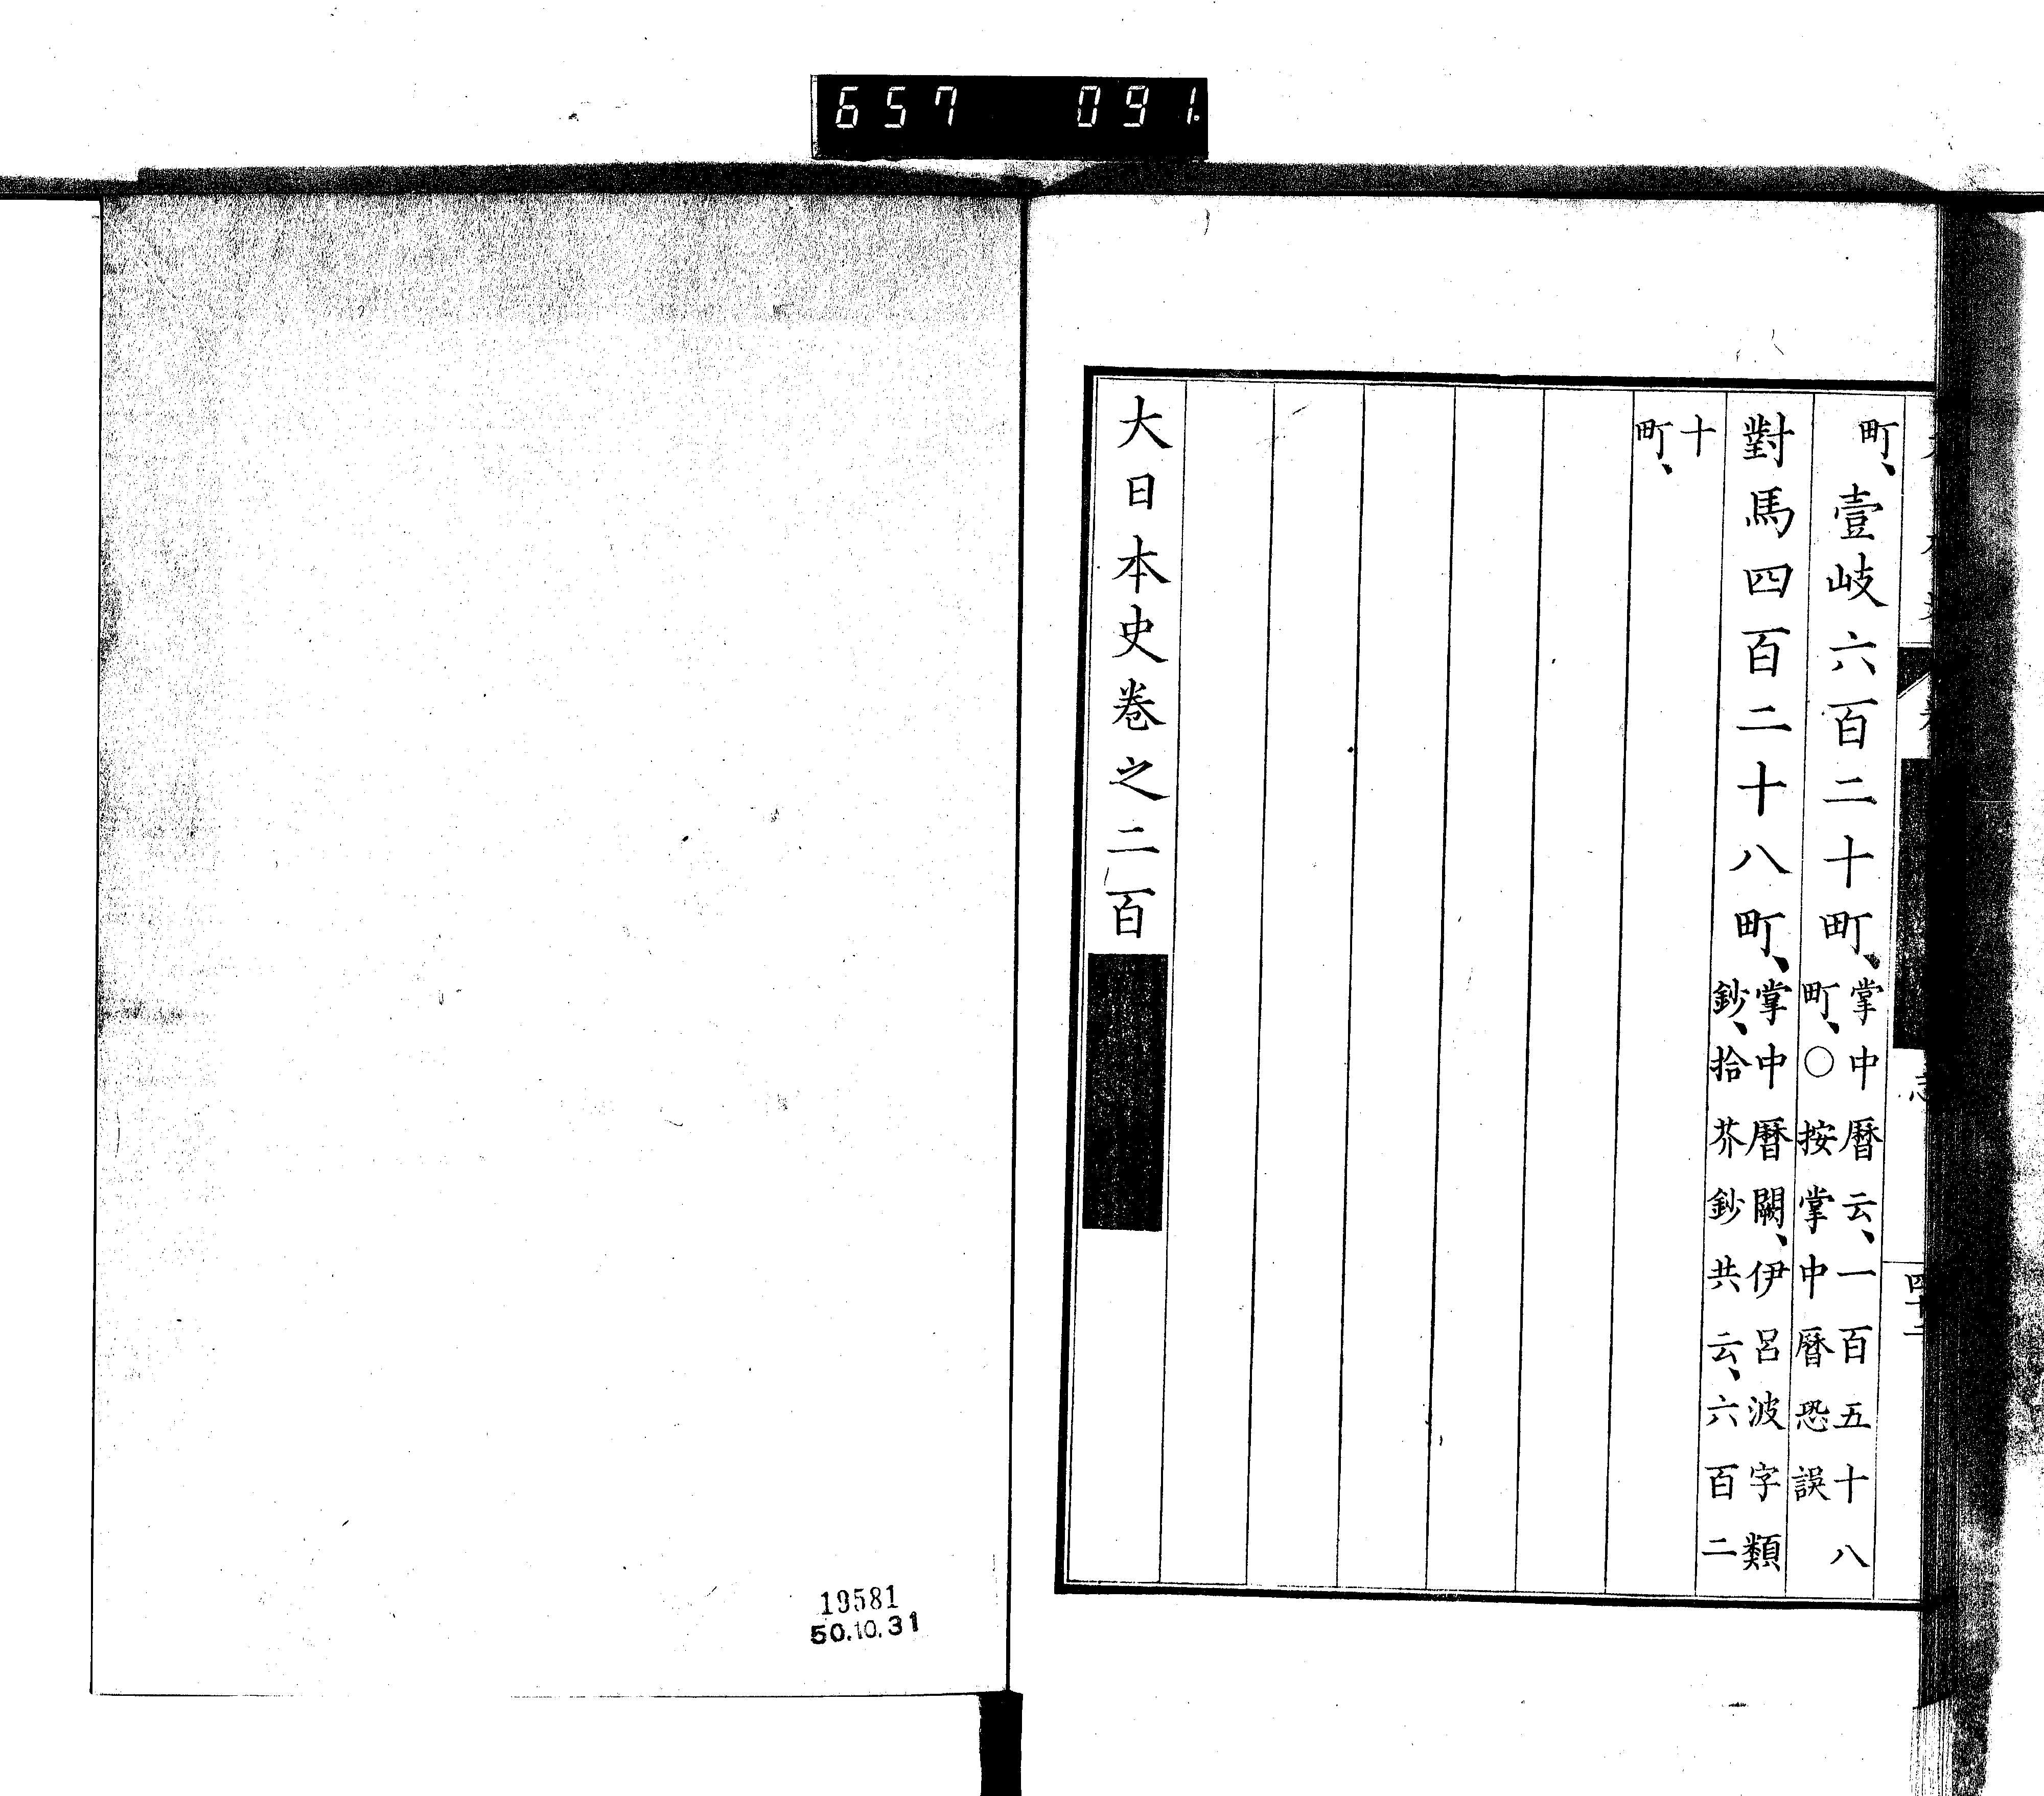 657 091
町、壹岐六百二十町、掌中暦云、一百五十八町、○按掌中暦恐誤
對馬四百二十八町、掌中暦闕、伊呂波字類鈔、拾芥鈔共云、六百二
十町、
大日本史卷之二百
志
四十二
19581
50.10.31